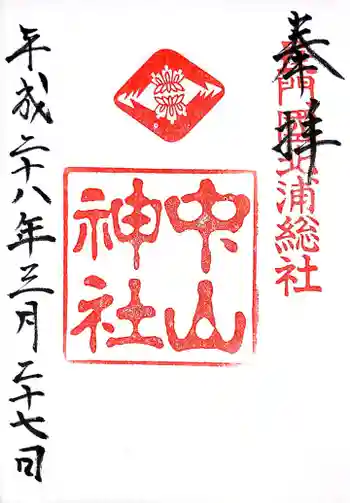 奉拝
浦総社
中山
神社
平成二十八年三月二十七日